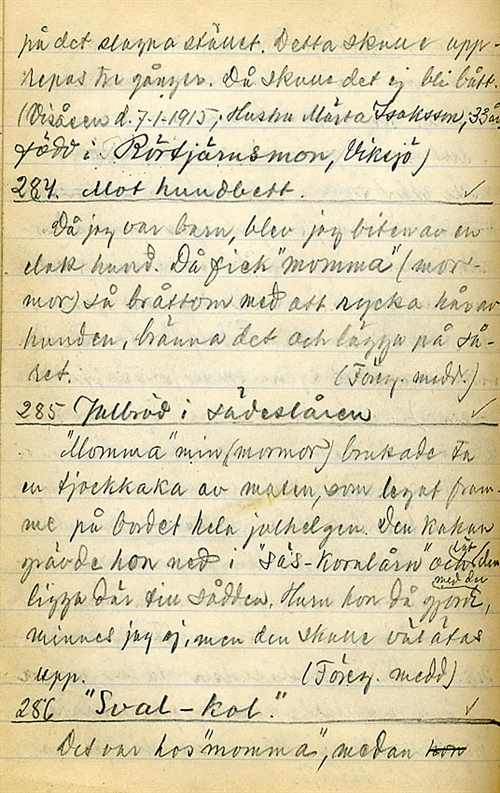 på det slagna stället. Detta skulle upp-
repas tre gånger. Då skulle det ej bli blått.
(Visåsen d. 7-1-1915; Hustru Märta Isaksson, 33 år
född i Rörtjärnsmon, Viksjö)
284. Mot hundbett. ✓
Då jag var barn, blev jag biten av en
elak hund. Då fick "momma" (mor-
mor) så bråttom med att rycka hår av
hunden, bränna det och lägga på så-
ret. (Föreg. medd.)
285 Julbröd i sädeslåren ✓
"Momma" min (mormor) brukade ta
en tjockkaka av maten, som legat fram-
me på bordet hela julhelgen. Den kakan
grävde hon ned i "säs-kornlårn" och lät den
ligga där till sådden. Huru hon då gjorde med den,
minnes jag ej, men den skulle väl ätas
upp. (Föreg. medd)
286 "Sval-kol." ✓
Det var hos "momma", medan hon